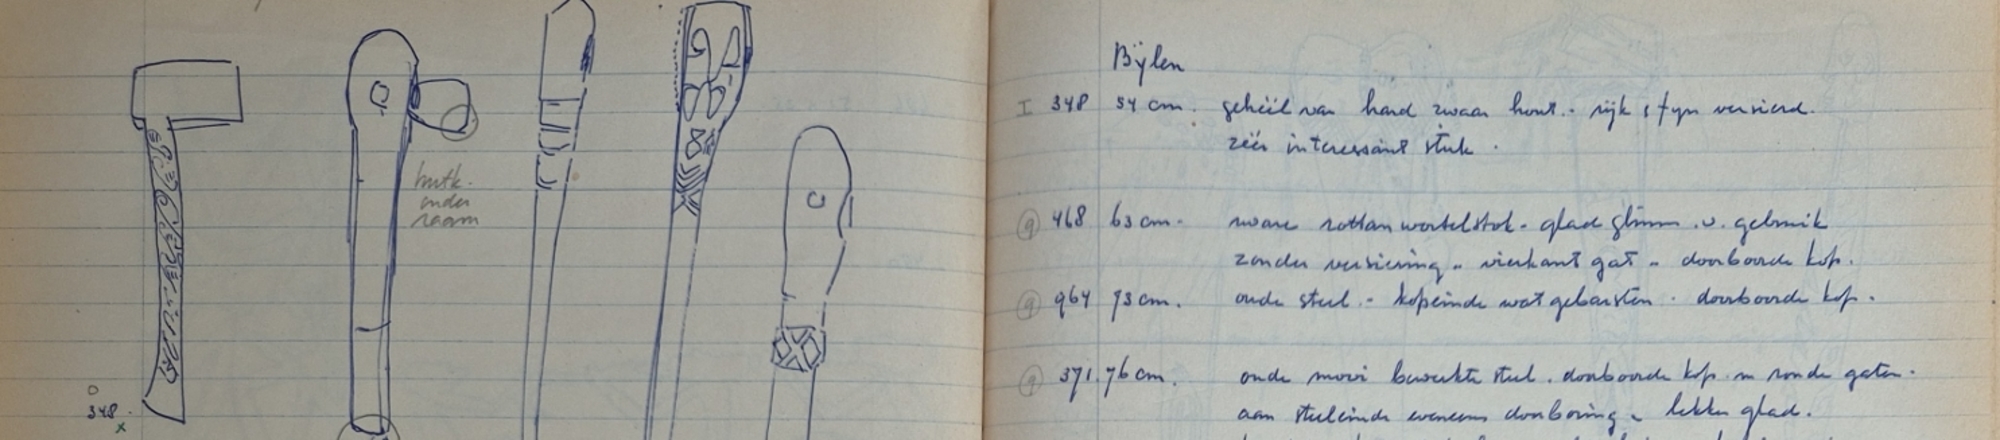 hutk.
onder
raam
348.
x
Bijlen
I 348 54 cm. geheel van hard zwaar hout. - rijk & fijn versierd.
zéér interessant stuk.
9 468 63 cm. zware rottan wortelstok. glad glimm. v. gebruik
zonder versiering. vierkant gat. doorboorde kop.
9 964 73 cm. oude steel. - kopeinde wat gebarsten. doorboorde kop.
9 371. 76 cm. oude mooi bewerkte steel. doorboorde kop m ronde gaten.
aan steeleinde eveneens doorboring. lekker glad.